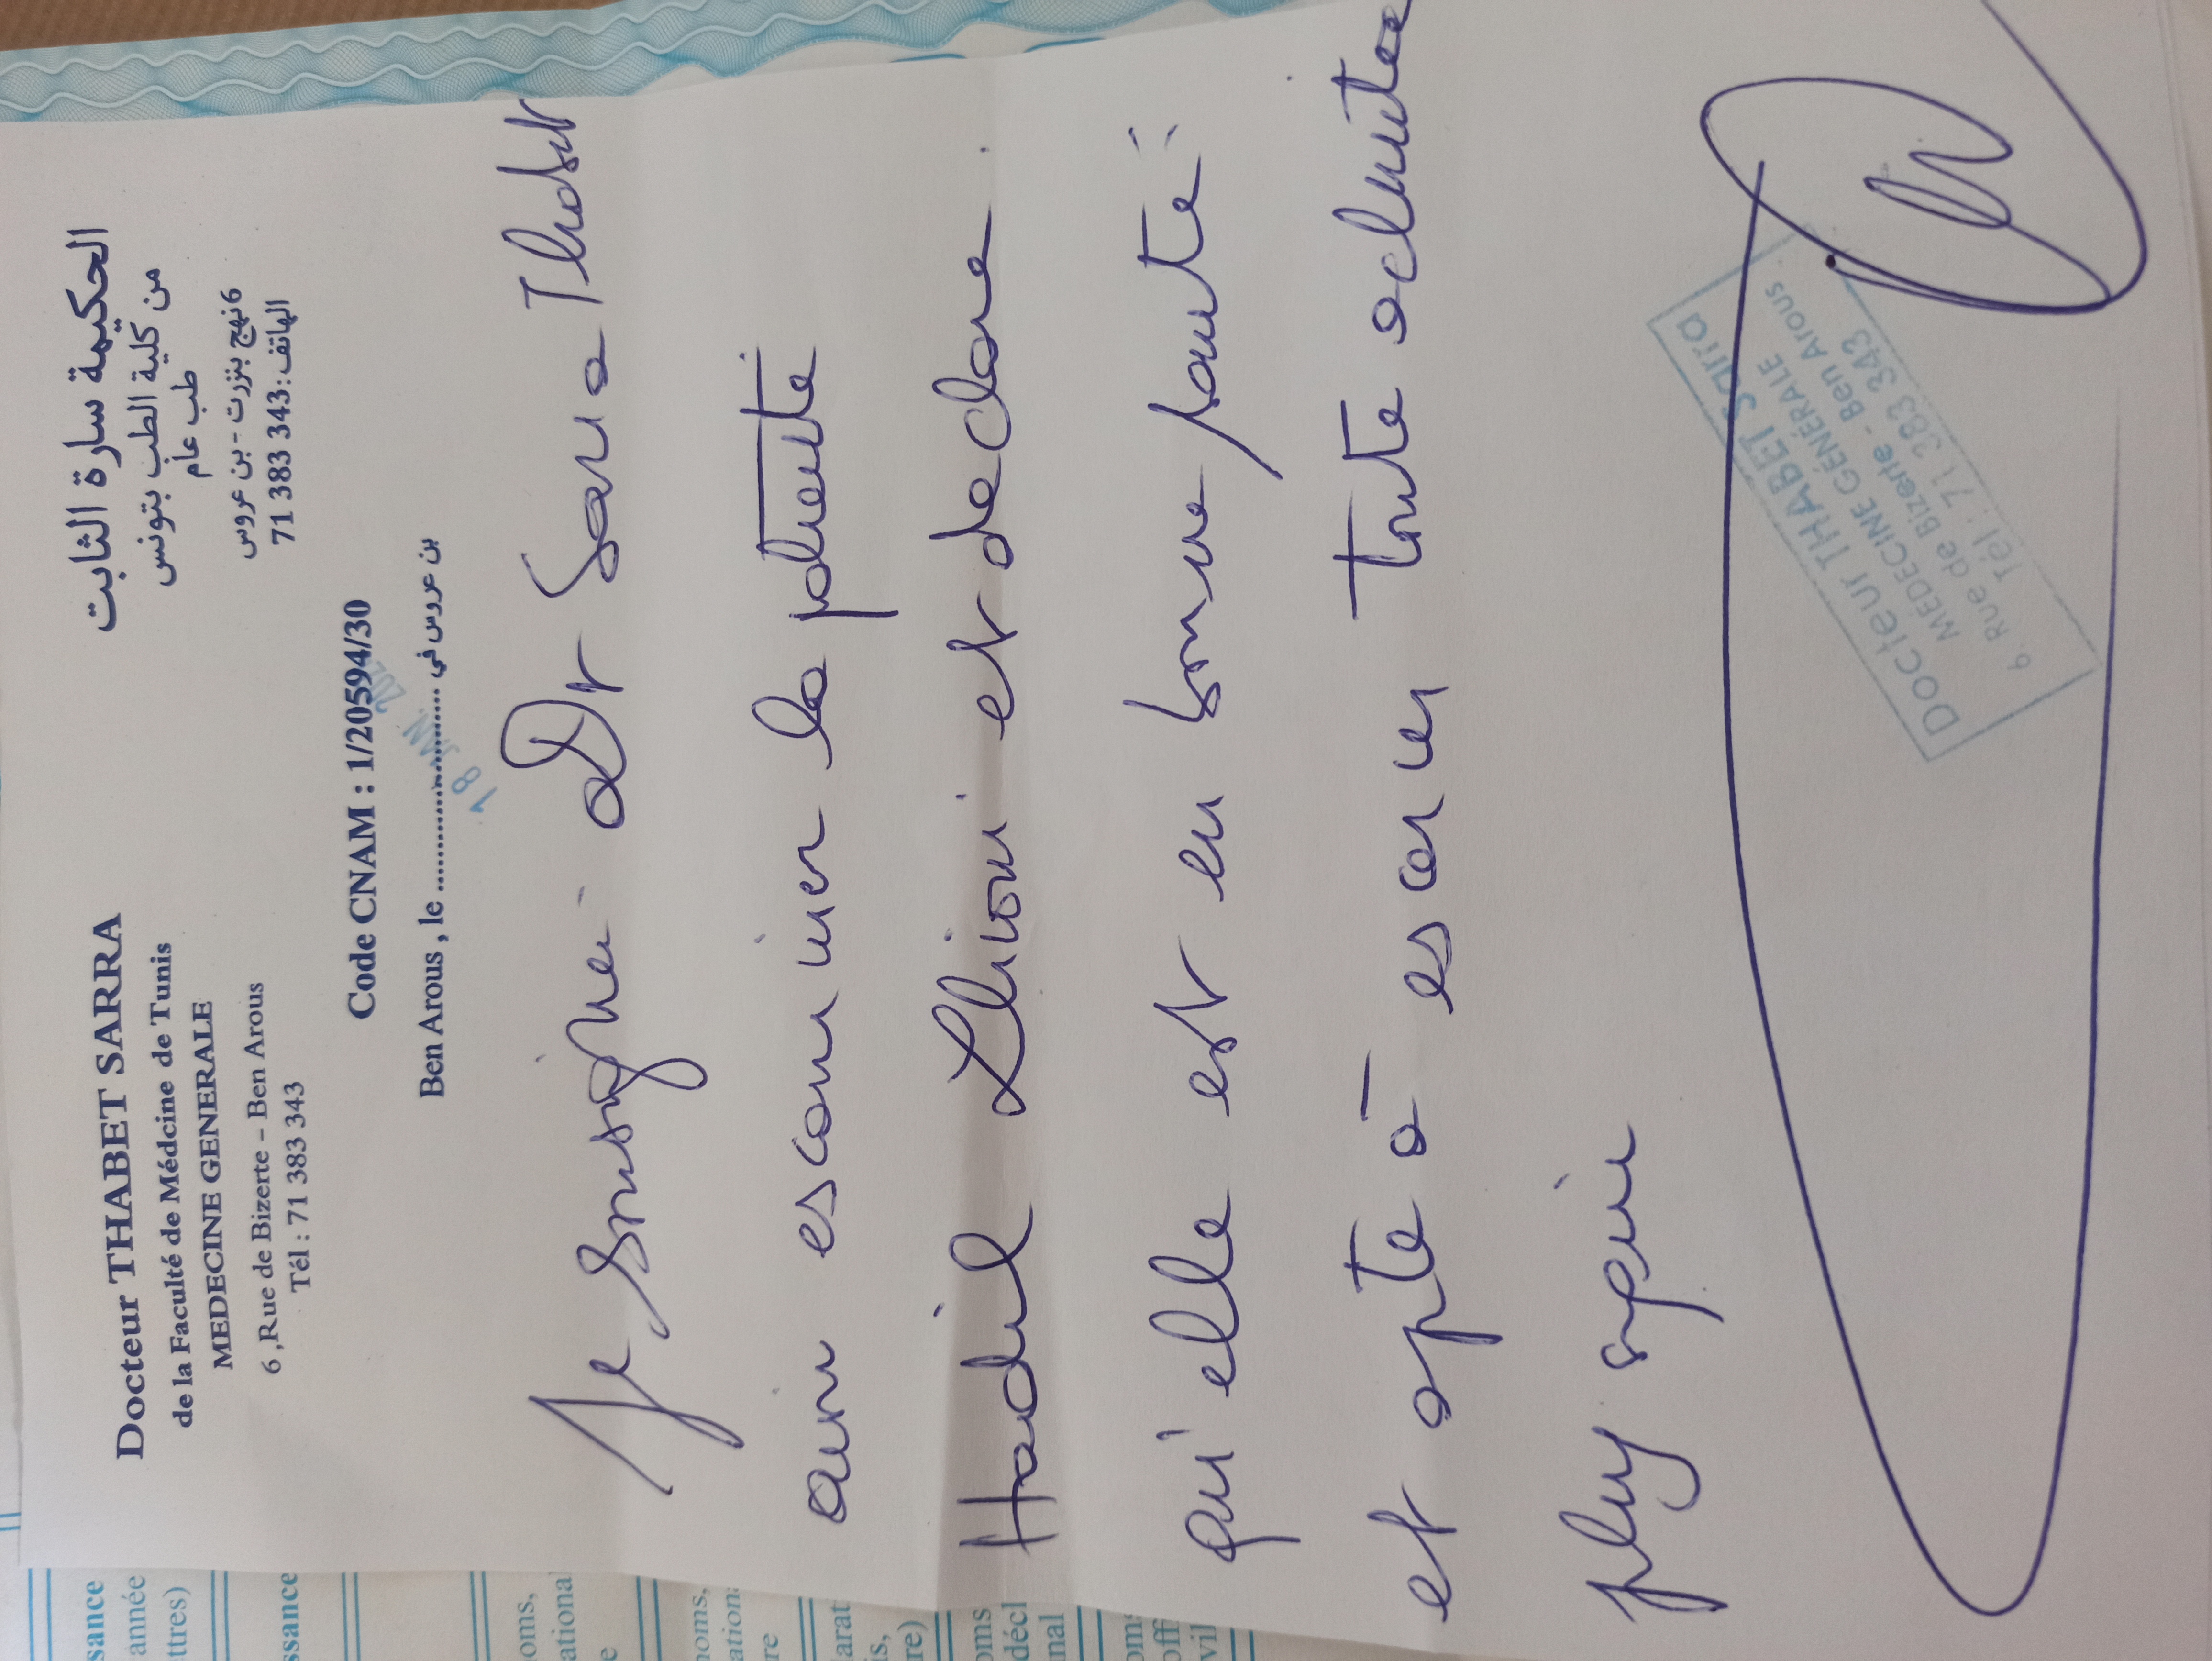 Docteur THABET SARRA
de la Faculté de Médcine de Tunis
MEDECINE GENERALE
6,Rue de Bizerte - Ben Arous
Tél : 71 383 343
الحكيمة سارة الثابت
من كلية الطب بتونس
طب عام
6 نهج بنزرت - بن عروس
الهاتف: 71 383 343
Code CNAM : 1/20594/30
Ben Arous , le .................... بن عروس في
18 JAN.
Je soussigné Dr Sarra Thabet
avoir examiner la patiente
Hadil et declare
qu'elle est en bonne santé
et apte à exercer toute activitée
physique
Docteur THABET Sarra
MÉDECINE GÉNÉRALE
6, Rue de Bizerte - Ben Arous
Tél : 71 383 343
sance
année
ttres)
ssance
oms,
ational
e
noms,
ation
re
arat
is,
re)
oms
décl
nal
om
off
vil